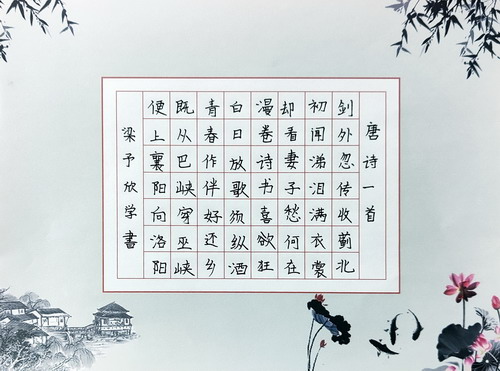 唐诗一首
剑外忽传收蓟北
初闻涕泪满衣裳
却看妻子愁何在
漫卷诗书喜欲狂
白日放歌须纵酒
青春作伴好还乡
既从巴峡穿巫峡
便上襄阳向洛阳
梁予欣学書